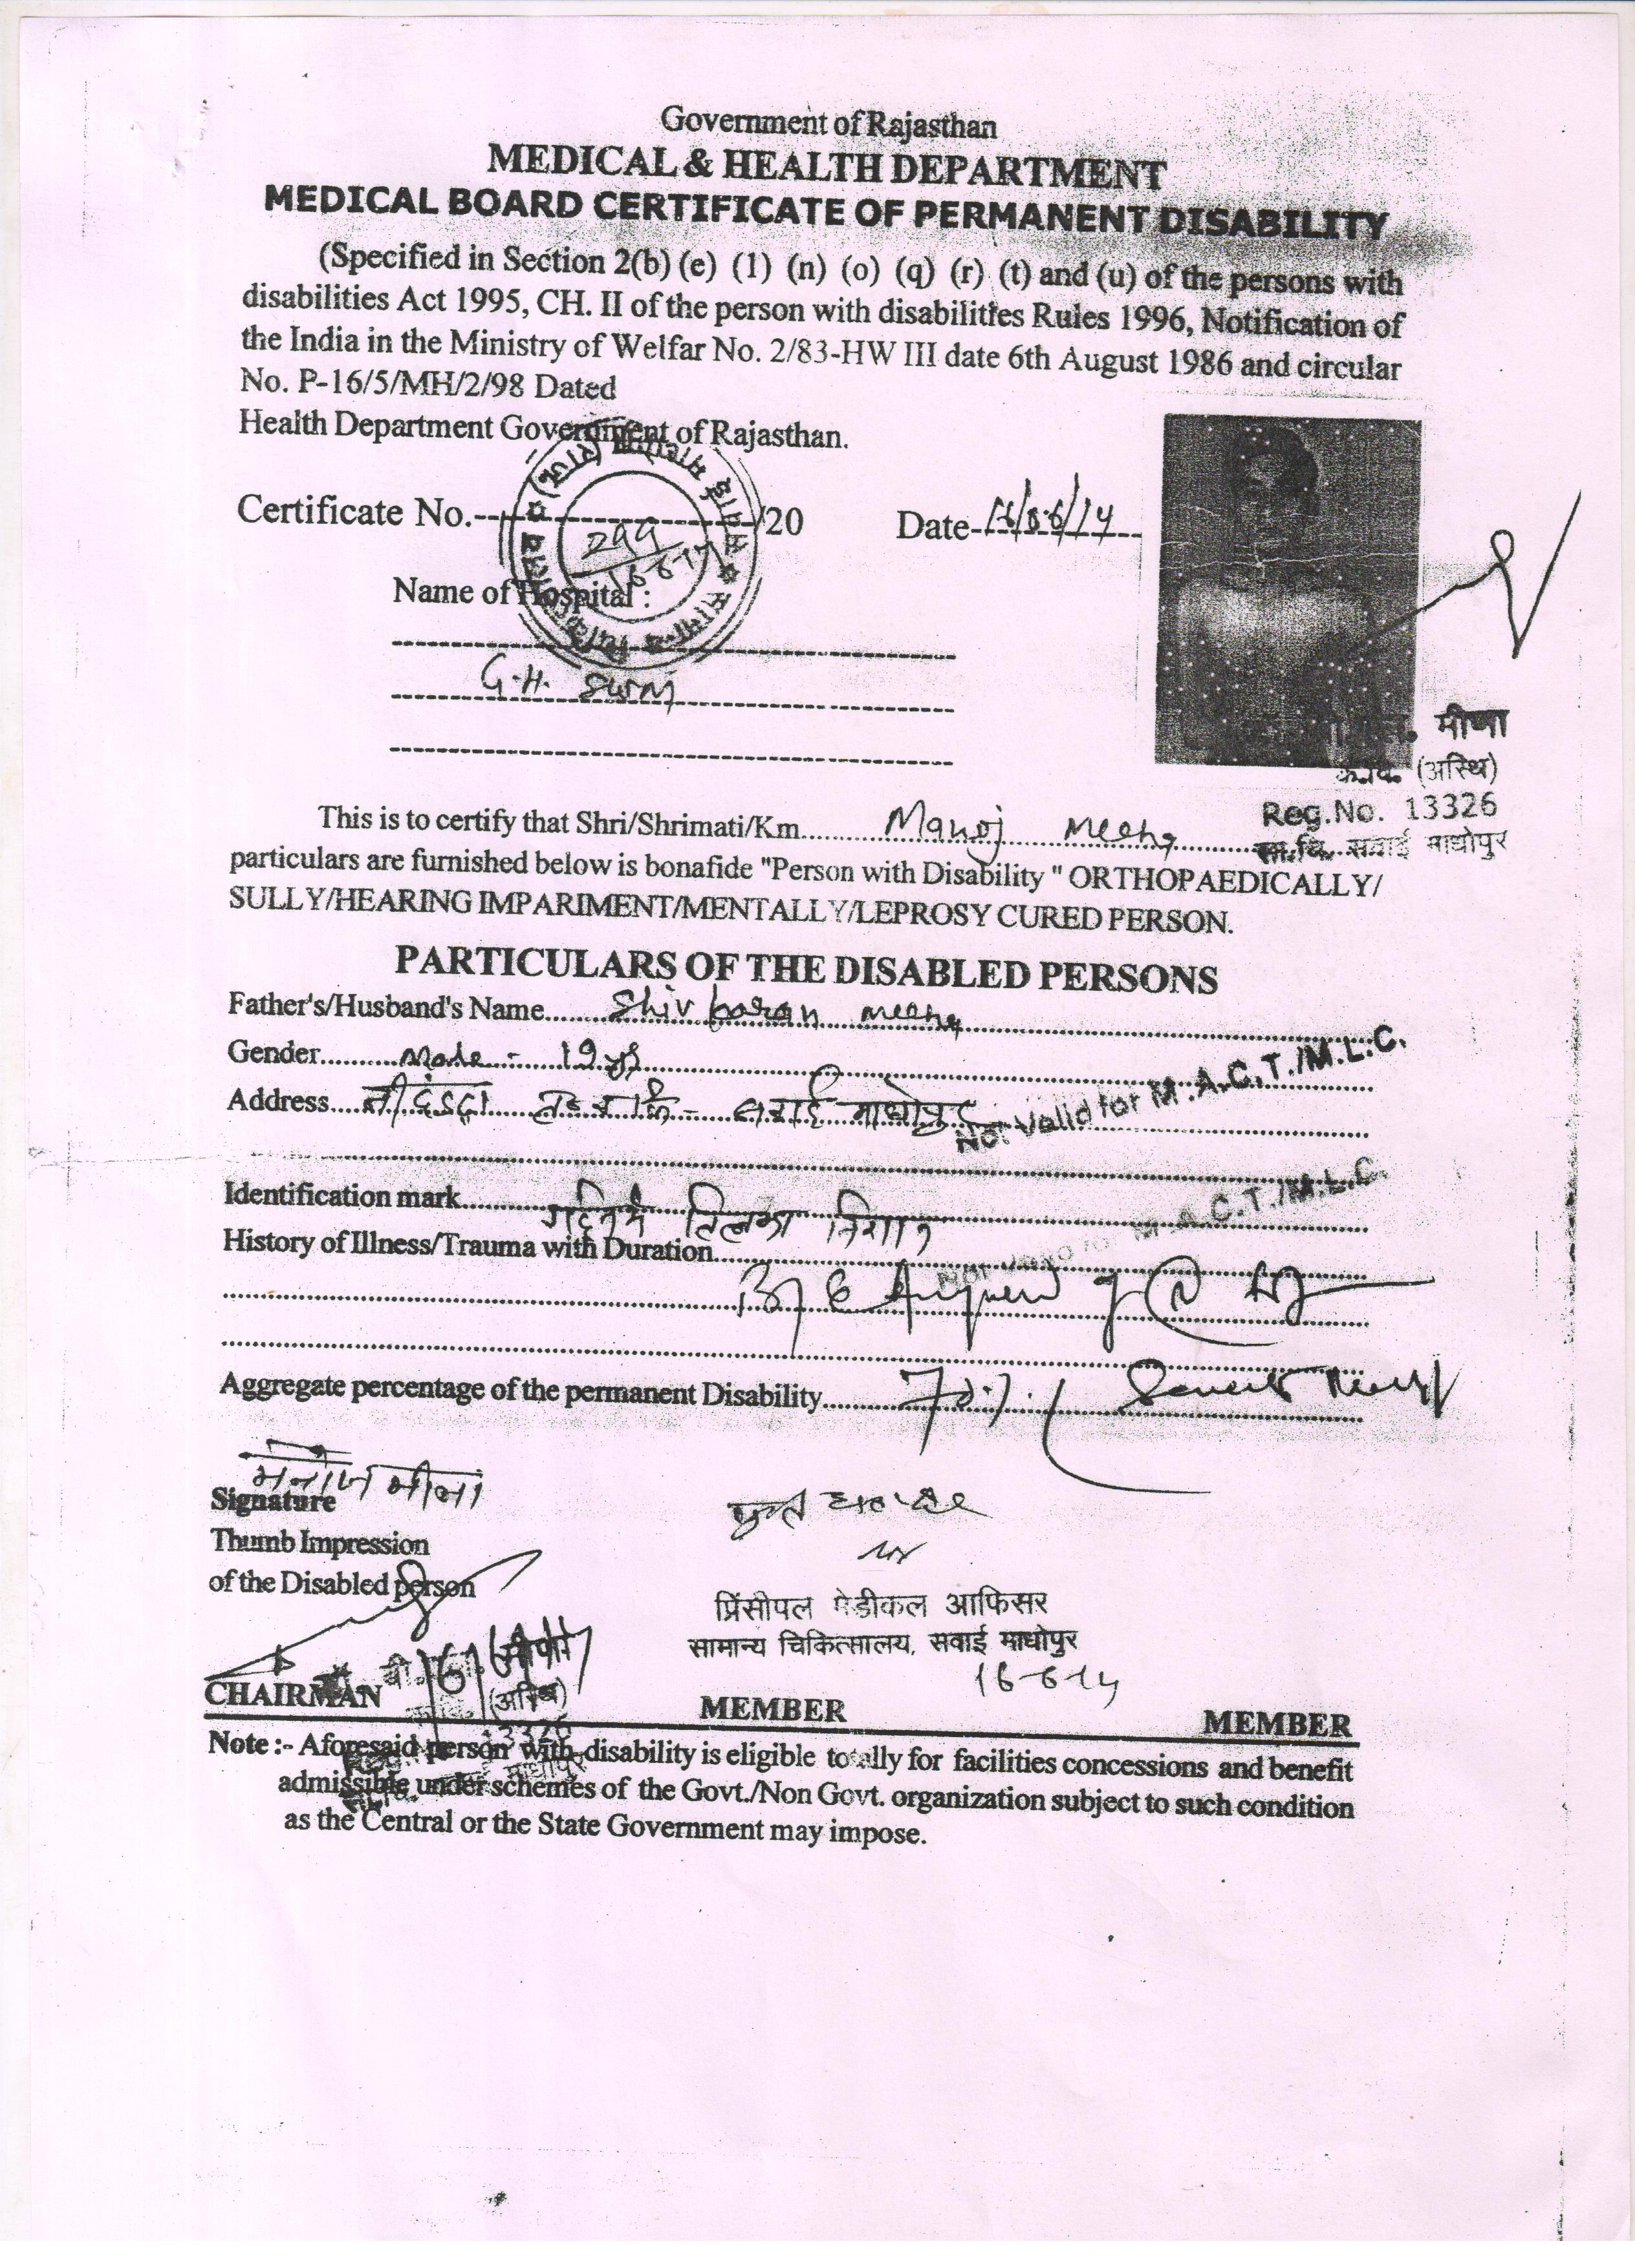 Government of Rajasthan
MEDICAL & HEALTH DEPARTMENT
MEDICAL BOARD CERTIFICATE OF PERMANENT DISABILITY
(Specified in Section 2(b) (e) (1) (n) (o) (q) (r) (t) and (u) of the persons with
disabilities Act 1995, CH. II of the person with disabilities Rules 1996, Notification of
the India in the Ministry of Welfar No. 2/83-HW III date 6th August 1986 and circular
No. P-16/5/MH/2/98 Dated
Health Department Government of Rajasthan.
Certificate No.- /20 Date- 16/06/14
299
Name of Hospital :
G.H. SWM
मीणा
क.वि. (अस्थि)
Reg.No. 13326
सा.चि. सवाई माधोपुर
This is to certify that Shri/Shrimati/Km Manoj Meena
particulars are furnished below is bonafide "Person with Disability " ORTHOPAEDICALLY/
SULLY/HEARING IMPARIMENT/MENTALLY/LEPROSY CURED PERSON.
PARTICULARS OF THE DISABLED PERSONS
Father's/Husband's Name Shiv baran Meena
Gender Male - 19 yrs
Address सवाई माधोपुर
Not Valid for M.A.C.T./M.L.C.
Identification mark गर्दन में तिल का निशान
Not Valid for M.A.C.T./M.L.C.
History of Illness/Trauma with Duration
Aggregate percentage of the permanent Disability
मनोज मीना
Signature
Thumb Impression
of the Disabled person
प्रिंसीपल मेडीकल आफिसर
सामान्य चिकित्सालय, सवाई माधोपुर
16-6-14
CHAIRMAN MEMBER MEMBER
Note :- Aforesaid person with disability is eligible totally for facilities concessions and benefit
admissible under schemes of the Govt./Non Govt. organization subject to such condition
as the Central or the State Government may impose.